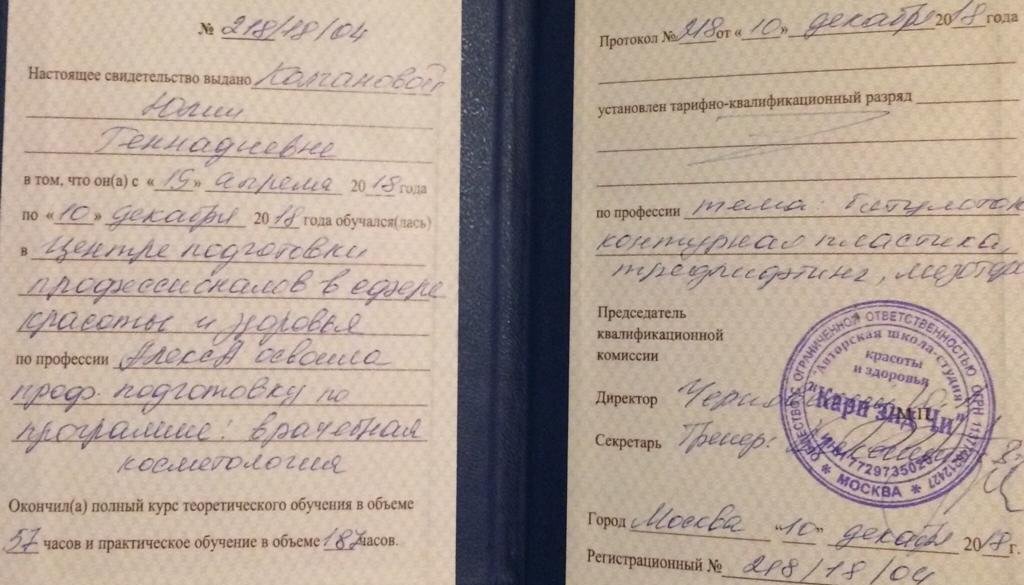 № 218/18/04
Настоящее свидетельство выдано
Юлии
Геннадиевне
в том, что он(а) с « 19 » апреля 2018 года
по « 10 » декабря 2018 года обучался(лась)
в Центре подготовки
профессионалов в сфере
красоты и здоровья
по профессии АлексА освоила
проф. подготовку по
программе: врачебная
косметология
Окончил(а) полный курс теоретического обучения в объеме
57 часов и практическое обучение в объеме 187 часов.
Протокол № 218 от « 10 » декабря 2018 года
установлен тарифно-квалификационный разряд
по профессии тема:
контурная пластика,
Председатель
квалификационной
комиссии
Директор
Секретарь Тренер:
М.П.
ОБЩЕСТВО С ОГРАНИЧЕННОЙ ОТВЕТСТВЕННОСТЬЮ ОГРН
"Авторская школа-студия
красоты
и здоровья
"Кари энд Чи"
* МОСКВА *
Город Москва "10" декабря 2018 г.
Регистрационный № 218/18/04